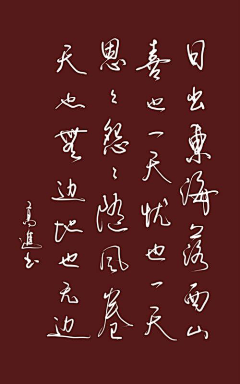 日出東海落西山
喜也一天忧也一天
恩恩怨怨随風卷
天也無边地也无边
高進书